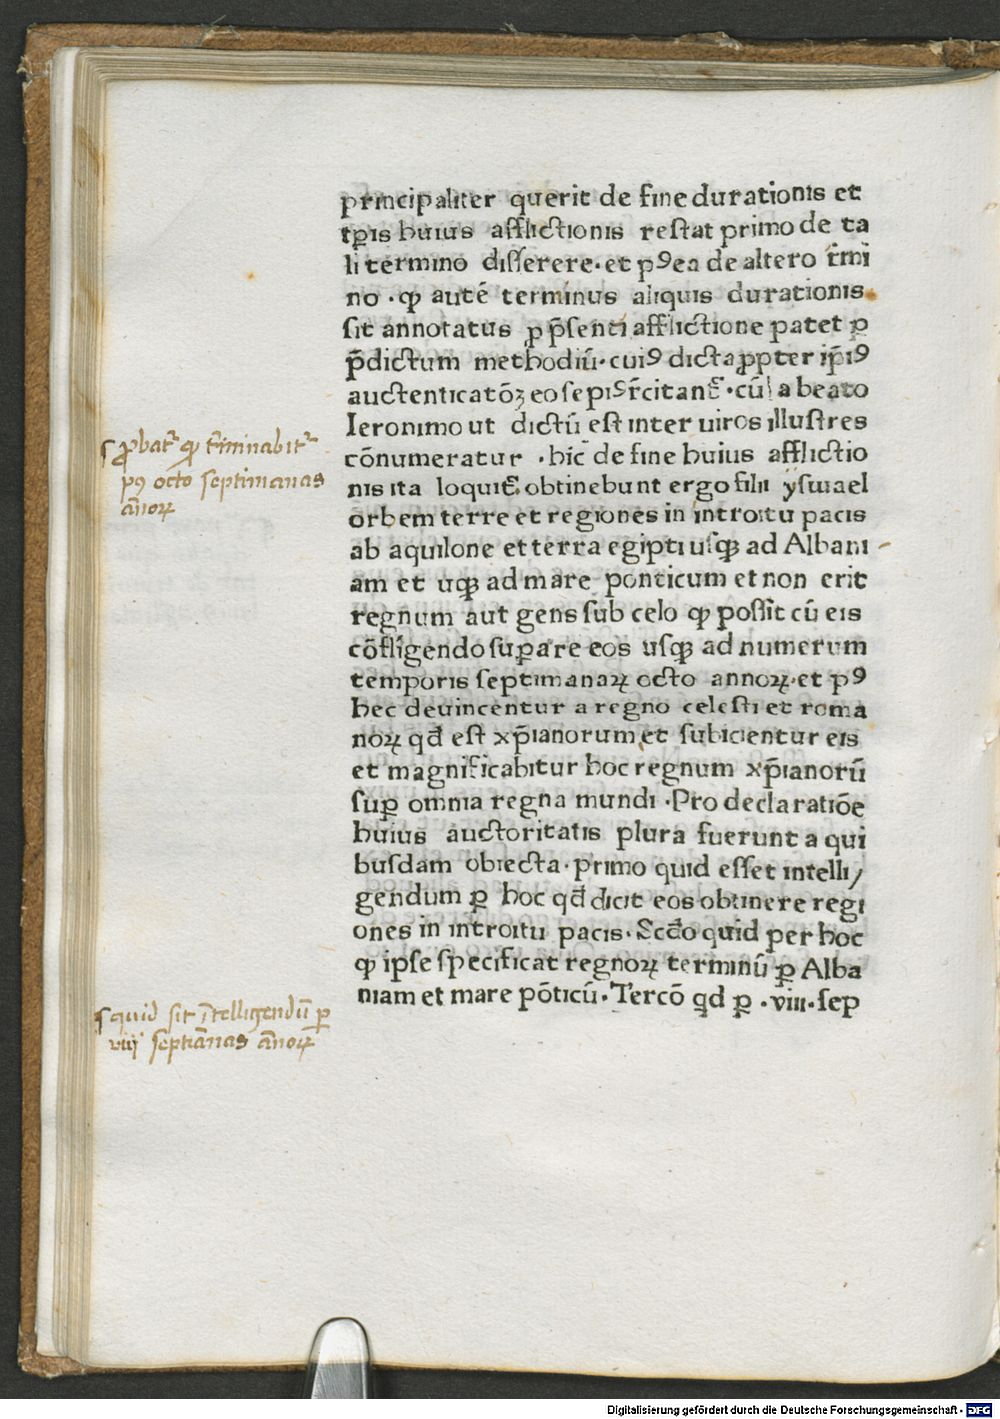 principaliter querit de fine durationis et
tꝑis huius afflictionis restat primo de ta
li termino disserere·et pꝰea de altero t̄mi
no ·ꝙ autē terminus aliquis durationis
sit annotatus ꝓ p̄senti afflictione patet ꝑ
p̄dictum methodiū·cuiꝰ dicta ꝓpter ip̄iꝰ
cū a beato
Ieronimo ut dictū est inter uiros illustres
cōnumeratur ·hic de fine huius afflictio
nis ita loquit᷑ obtinebunt ergo filii ysmael
orbem terre et regiones in introitu pacis
ab aquilone et terra egipti usꝙ ad Albani
am et uꝙ ad mare ponticum et non erit
regnum aut gens sub celo ꝙ possit cū eis
cōfligendo suꝑare eos usꝙ ad numerum
temporis septimanaꝝ octo annoꝝ·et pꝰ
hec deuincentur a regno celesti et roma
noꝝ qđ est xp̄ianorum et subicientur eis
et magnificabitur hoc regnum xp̄ianorū
suꝑ omnia regna mundi ·Pro declaratiōe
huius auctoritatis plura fuerunt a qui
busdam obiecta·primo quid esset intelli/
gendum ꝑ hoc qđ dicit eos obtinere regi
ones in introitu pacis·Scđo quid per hoc
ꝙ ipse specificat regnoꝝ terminū ꝑ Alba
niam et mare pōticū·Tercō qđ ꝑ ·viii·sep
ꝓbat᷑ ꝙ t̄minabit᷑
pꝰ octo septimanas
ānoꝝ
quid sit ītelligendū ꝑ
viij septīanas ānoꝝ
Digitalisierung gefördert durch die Deutsche Forschungsgemeinschaft - DFG